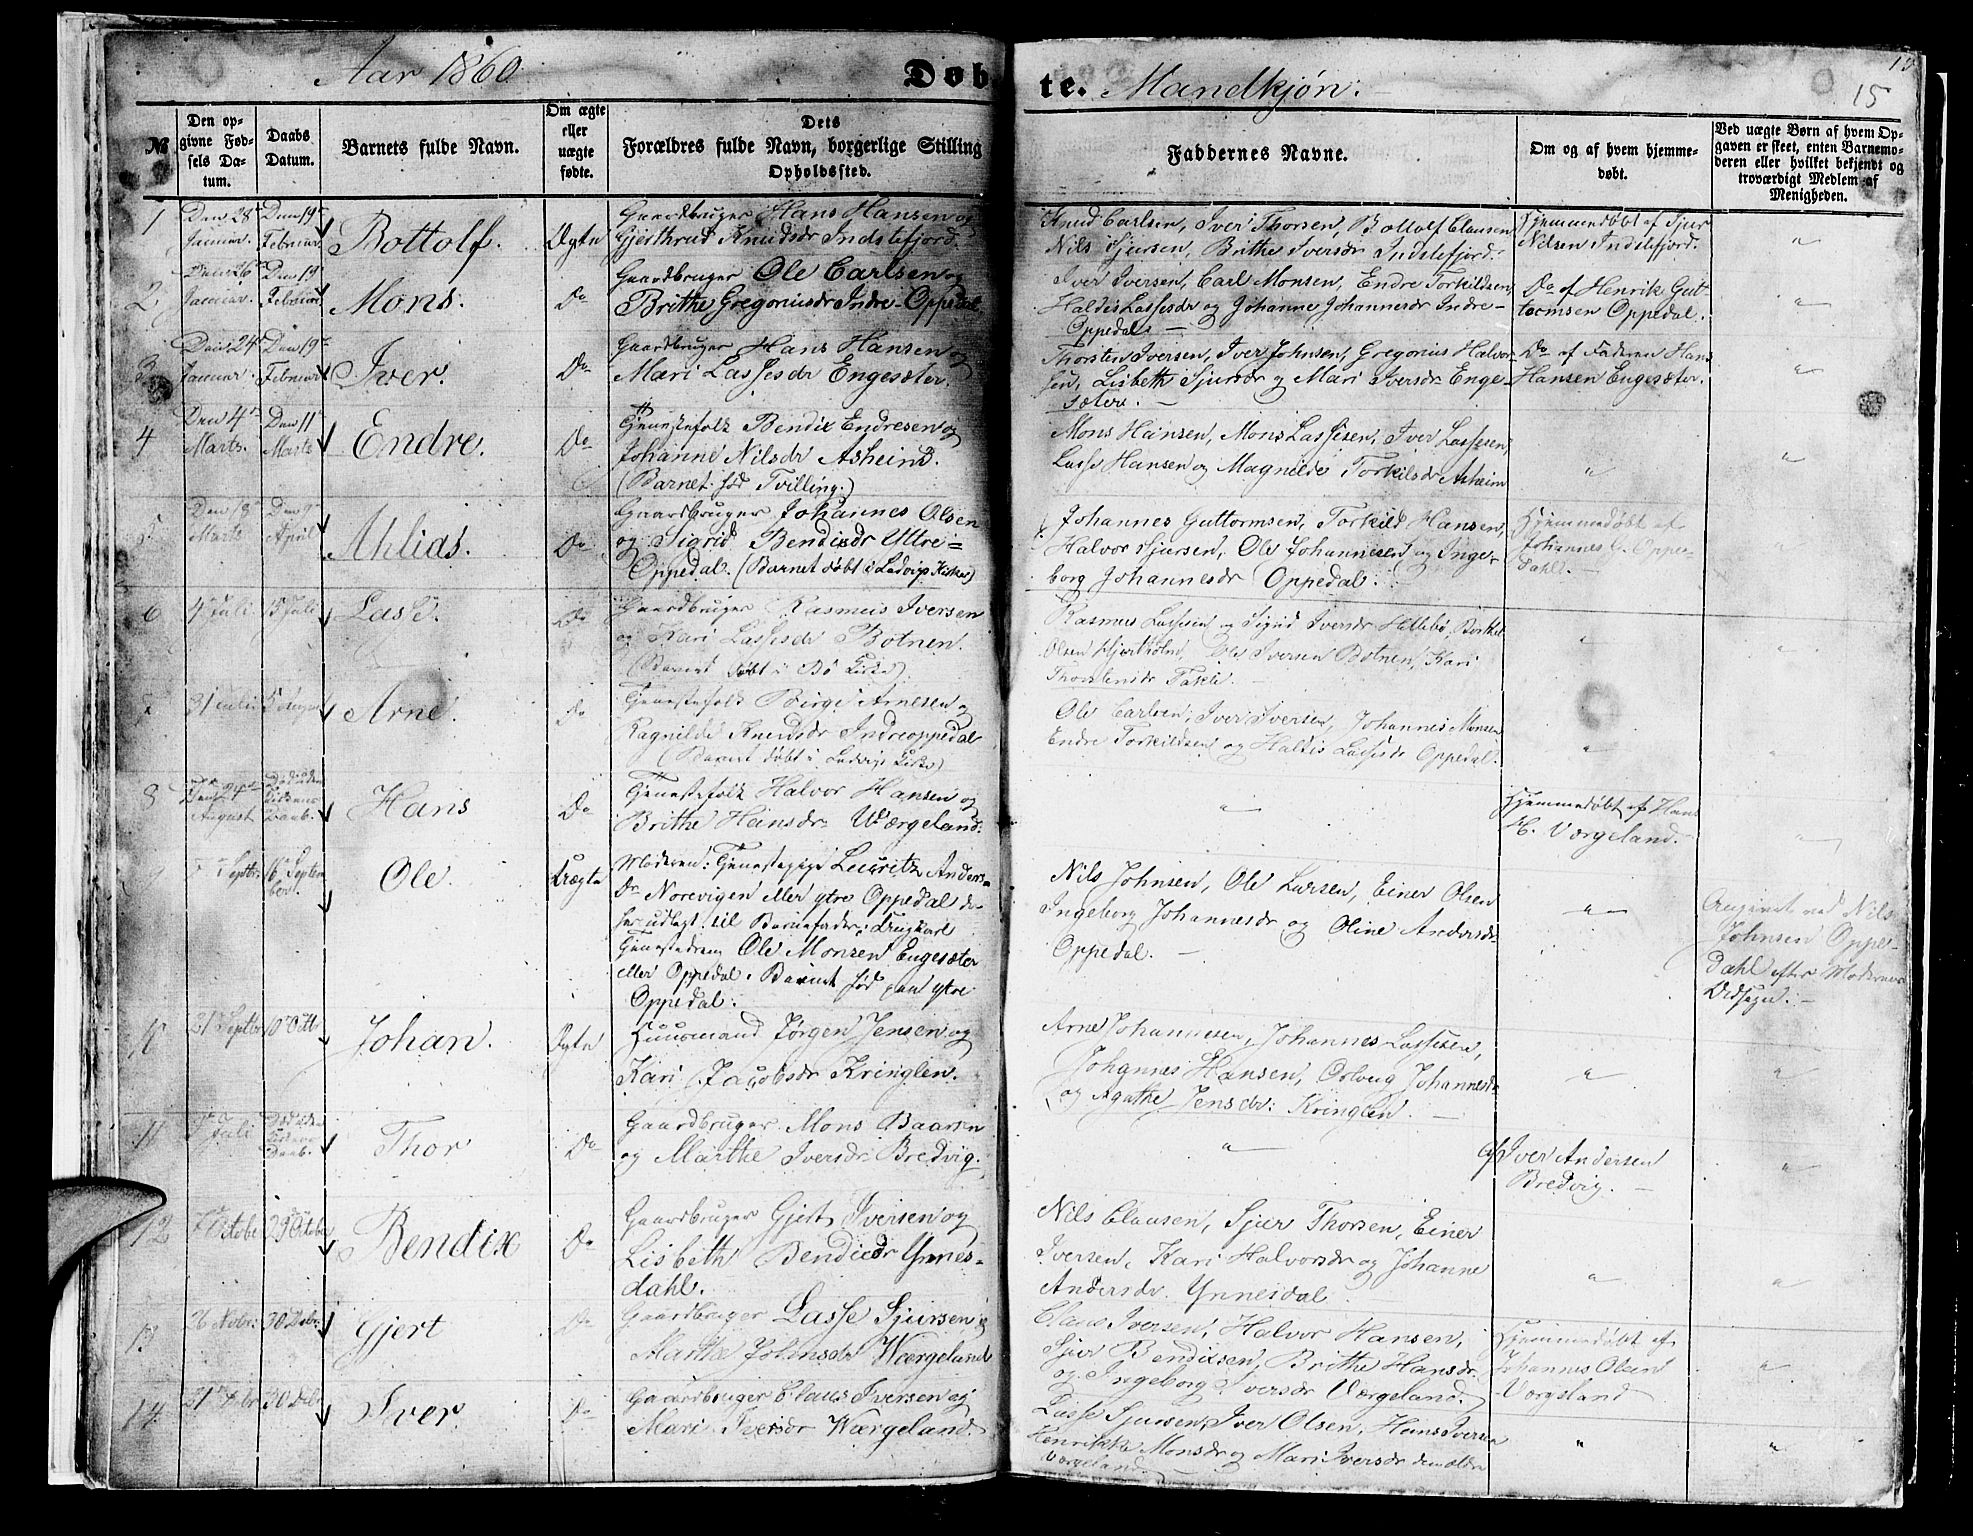 Aar 1860.
Døbte. Mandkjøn.
15
№
Den opgivne Fødsels Datum.
Daabs Datum.
Barnets fulde Navn.
Om ægte eller uægte fødte.
Dets Forældres fulde Navn, borgerlige Stilling Opholdssted.
Faddernes Navne.
Om og af hvem hjemmedøbt.
Ved uægte Børn af hvem Opgaven er skeet, enten Barnemoderen eller hvilket bekjendt og troværdigt Medlem af Menigheden.
1
Den 28de Januar.
Den 19de Februar.
Bottolf.
Ægte
Gaardbruger Hans Hansen og
Gjerthrud Knudsdr Indstefjord.
Knud Carlsen, Iver Thorsen, Bottolf Clausen
Nils Sjursen, Brithe Iversdr Indstefjord.
Hjemmedøbt af Sjur
Nilsen Indstefjord.
"
2
Den 26de Januar.
Den 19 Februar
Mons.
Do
Gaardbruger Ole Carlsen og
Brithe Gregoriusdr Indre-Oppedal
Iver Iversen, Carl Monsen, Endre Torkildsen,
Haldis Lassesdr og Johanne Johannesdr Indre-
Oppedal. —
Do af Henrik Gut-
tormsen Oppedal.
"
3
Den 24de Januar.
Den 19de Februar
Iver.
Do
Gaardbruger Hans Hansen og
Mari Lassesdr Engesæter.
Thorsten Iversen, Iver Johnsen, Gregorius Halvor-
sen, Lisbeth Sjursdr og Mari Iversdr Enge-
sæter. —
Do af Faderen Hans
Hansen Engesæter.
"
4
Den 4de Marts.
Den 11 Marts
Endre.
Do
Tjenestefolk Bendix Endresen og
Johanne Nilsdr Asheim.
(Barnet fød Tvilling.)
Mons Hansen, Mons Lassesen, Iver Lassesen,
Lasse Hansen og Magnilde Torkilsdr Asheim
"
"
5
Den 18de Marts
April
Ahlias.
Do
Gaardbruger Johannes Olsen
og Sigrid Bendixdr Yttre-
Oppedal. (Barnet døbt i Ladvigs Kirke)
Johannes Guttormsen, Torkild Hansen,
Halvor Sjursen, Ole Johannesen og Inge-
borg Johannesdr Oppedal.
Hjemmedøbt af
Johannes G. Oppe-
dahl.
"
6
4de Juli
15 Juli
Lasse.
Do
Gaardbruger Rasmus Iversen
og Kari Lassesdr Botnen.
(Barnet døbt i Bø Kirke)
Rasmus Lassesen og Sigrid Iversdr Hellebø,
Olsen Hjertholm, Ole Iversen Botnen, Kari
Takle. —
"
"
7
31 Juli
5 August
Arne.
Do
Tjenestefolk Børge Arnesen og
Ragnilde Knudsdr Indreoppedal
(Barnet døbt i Ladvigs Kirke)
Ole Carlsen, Iver Iversen, Johannes Monsen
Endre Torkildsen og Haldis Lassesdr Oppedal.
"
"
8
August
Død uden Kirkens Daab.
Hans
Do
Tjenestefolk Halvor Hansen og
Brithe Hansdr Wærgeland.
"
Hjemmedøbt af Hans
H. Værgeland.
"
9
Septbr.
16 September.
Ole.
Uægte
Moderen: Tjenestepige Leuritz Anders-
Dr Norevigen eller ytre Oppedal
har udlagt til Barnefader: Ungkarl
Tjenestedreng Ole Monsen Engesæter
eller Oppedal. Barnet fød paa ytre
Oppedal.
Nils Johnsen, Ole Larsen, Einer Olsen
Ingeborg Johannesdr og Oline Andersdr
Oppedal. —
"
Angivet ved Nils
Johnsen Oppe-
dahl efter Moderens
Udsagn. —
10
21 Septbr
10 Octbr
Johan.
Ægte
Huusmand Jørgen Jensen og
Kari Jacobsdr Kringlen.
Arne Johannesen, Johannes Lassesen,
Johannes Hansen, Johannesdr
og Agathe Jensdr Kringlen. —
"
"
11
Juli
Død uden Kirkens Daab.
Thor
Do
Gaardbruger Mons Baarsen
og Marthe Iversdr Bredvig.
"
af Iver Andersen
Bredvig. —
"
12
October
29 October
Bendix
Do
Gaardbruger Gjert Iversen og
Lisbeth Bendixdr Ynnes-
dahl.
Nils Clausen, Sjur Thorsen, Einer
Iversen, Kari Halvorsdr og Johanne
Andersdr. Ynnesdal.
"
"
13
26 Novbr.
30 Decbr.
Gjert
Do
Gaardbruger Lasse Sjursen og
Marthe Johnsdr Wærgeland
Claus Iversen, Halvor Hansen,
Sjur Bendixsen, Brithe Hansdr
og Ingeborg Iversdr Værgeland.
Hjemmedøbt af
Johannes Olsen
Værgeland
"
14
21 Decbr
30 Decbr
Iver.
Do
Gaardbruger Claus Iversen og
Mari Iversdr Wærgeland.
Lasse Sjursen, Iver Olsen, Hans Iversen
Henrikke Monsdr og Mari Iversdr den ældre
Værgeland.
"
"